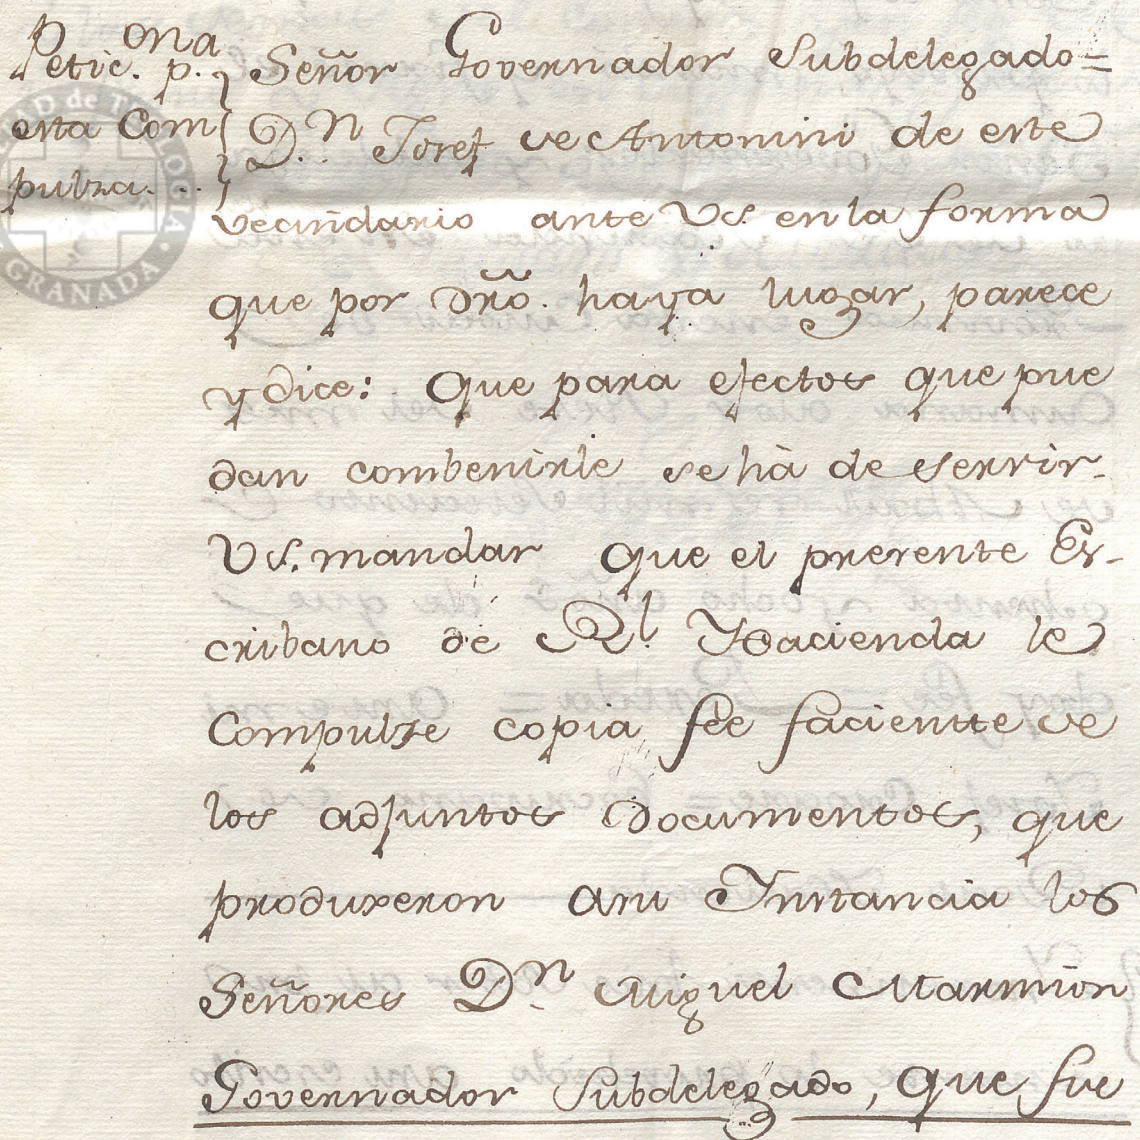 Petic.ona p.
esta Com
pulza. . .
Señor Governador Subdelegado =
D.n Josef de Antonini de este
vecindario ante VS. en la forma
que por dro. haya lugar, parece
y dice: Que para efectos que pue
dan combenirle se hà de servir
VS. mandar que el presente Es-
cribano de Rl. Hacienda le
Compulze copia fèe facientte de
los adjuntos Documentos, que
produxeron ami Instancia los
Señores Dn. Miguel Marmión
Governador Subdelegado, que fue
FACULTAD de TEOLOGIA · GRANADA ·